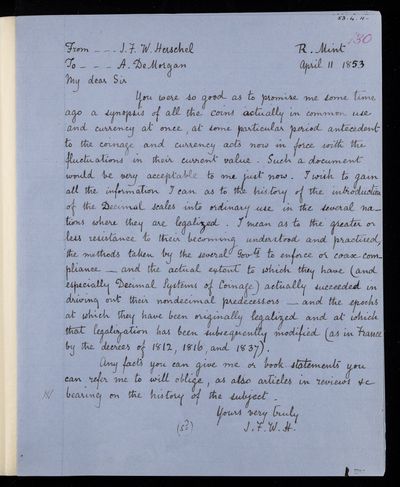 53.4.11
From - - - J. F. W. Herschel R. Mint
To - - - A. De Morgan April 11 1853
My dear Sir
You were so good as to promise me some time
ago a synopsis of all the coins actually in common use
and currency at once, at some particular period antecedent
to the coinage and currency acts now in force with the
fluctuations in their current value. Such a document
would be very acceptable to me just now. I wish to gain
all the information I can as to the history of the introduction
of the Decimal scales into ordinary use in the several na-
tions where they are legalized. I mean as to the greater or
less resistance to their becoming understood and practised,
the methods taken by the several Govts to enforce or coax com-
pliance — and the actual extent to which they have (and
especially Decimal Systems of Coinage) actually succeeded in
driving out their nondecimal predecessors — and the epochs
at which they have been originally legalized and at which
that legalization has been subsequently modified (as in France
by the decrees of 1812, 1816, and 1837).
Any facts you can give me or book statements you
can refer me to will oblige, as also articles in reviews &c
bearing on the history of the subject.
Yours very truly
J. F. W. H.